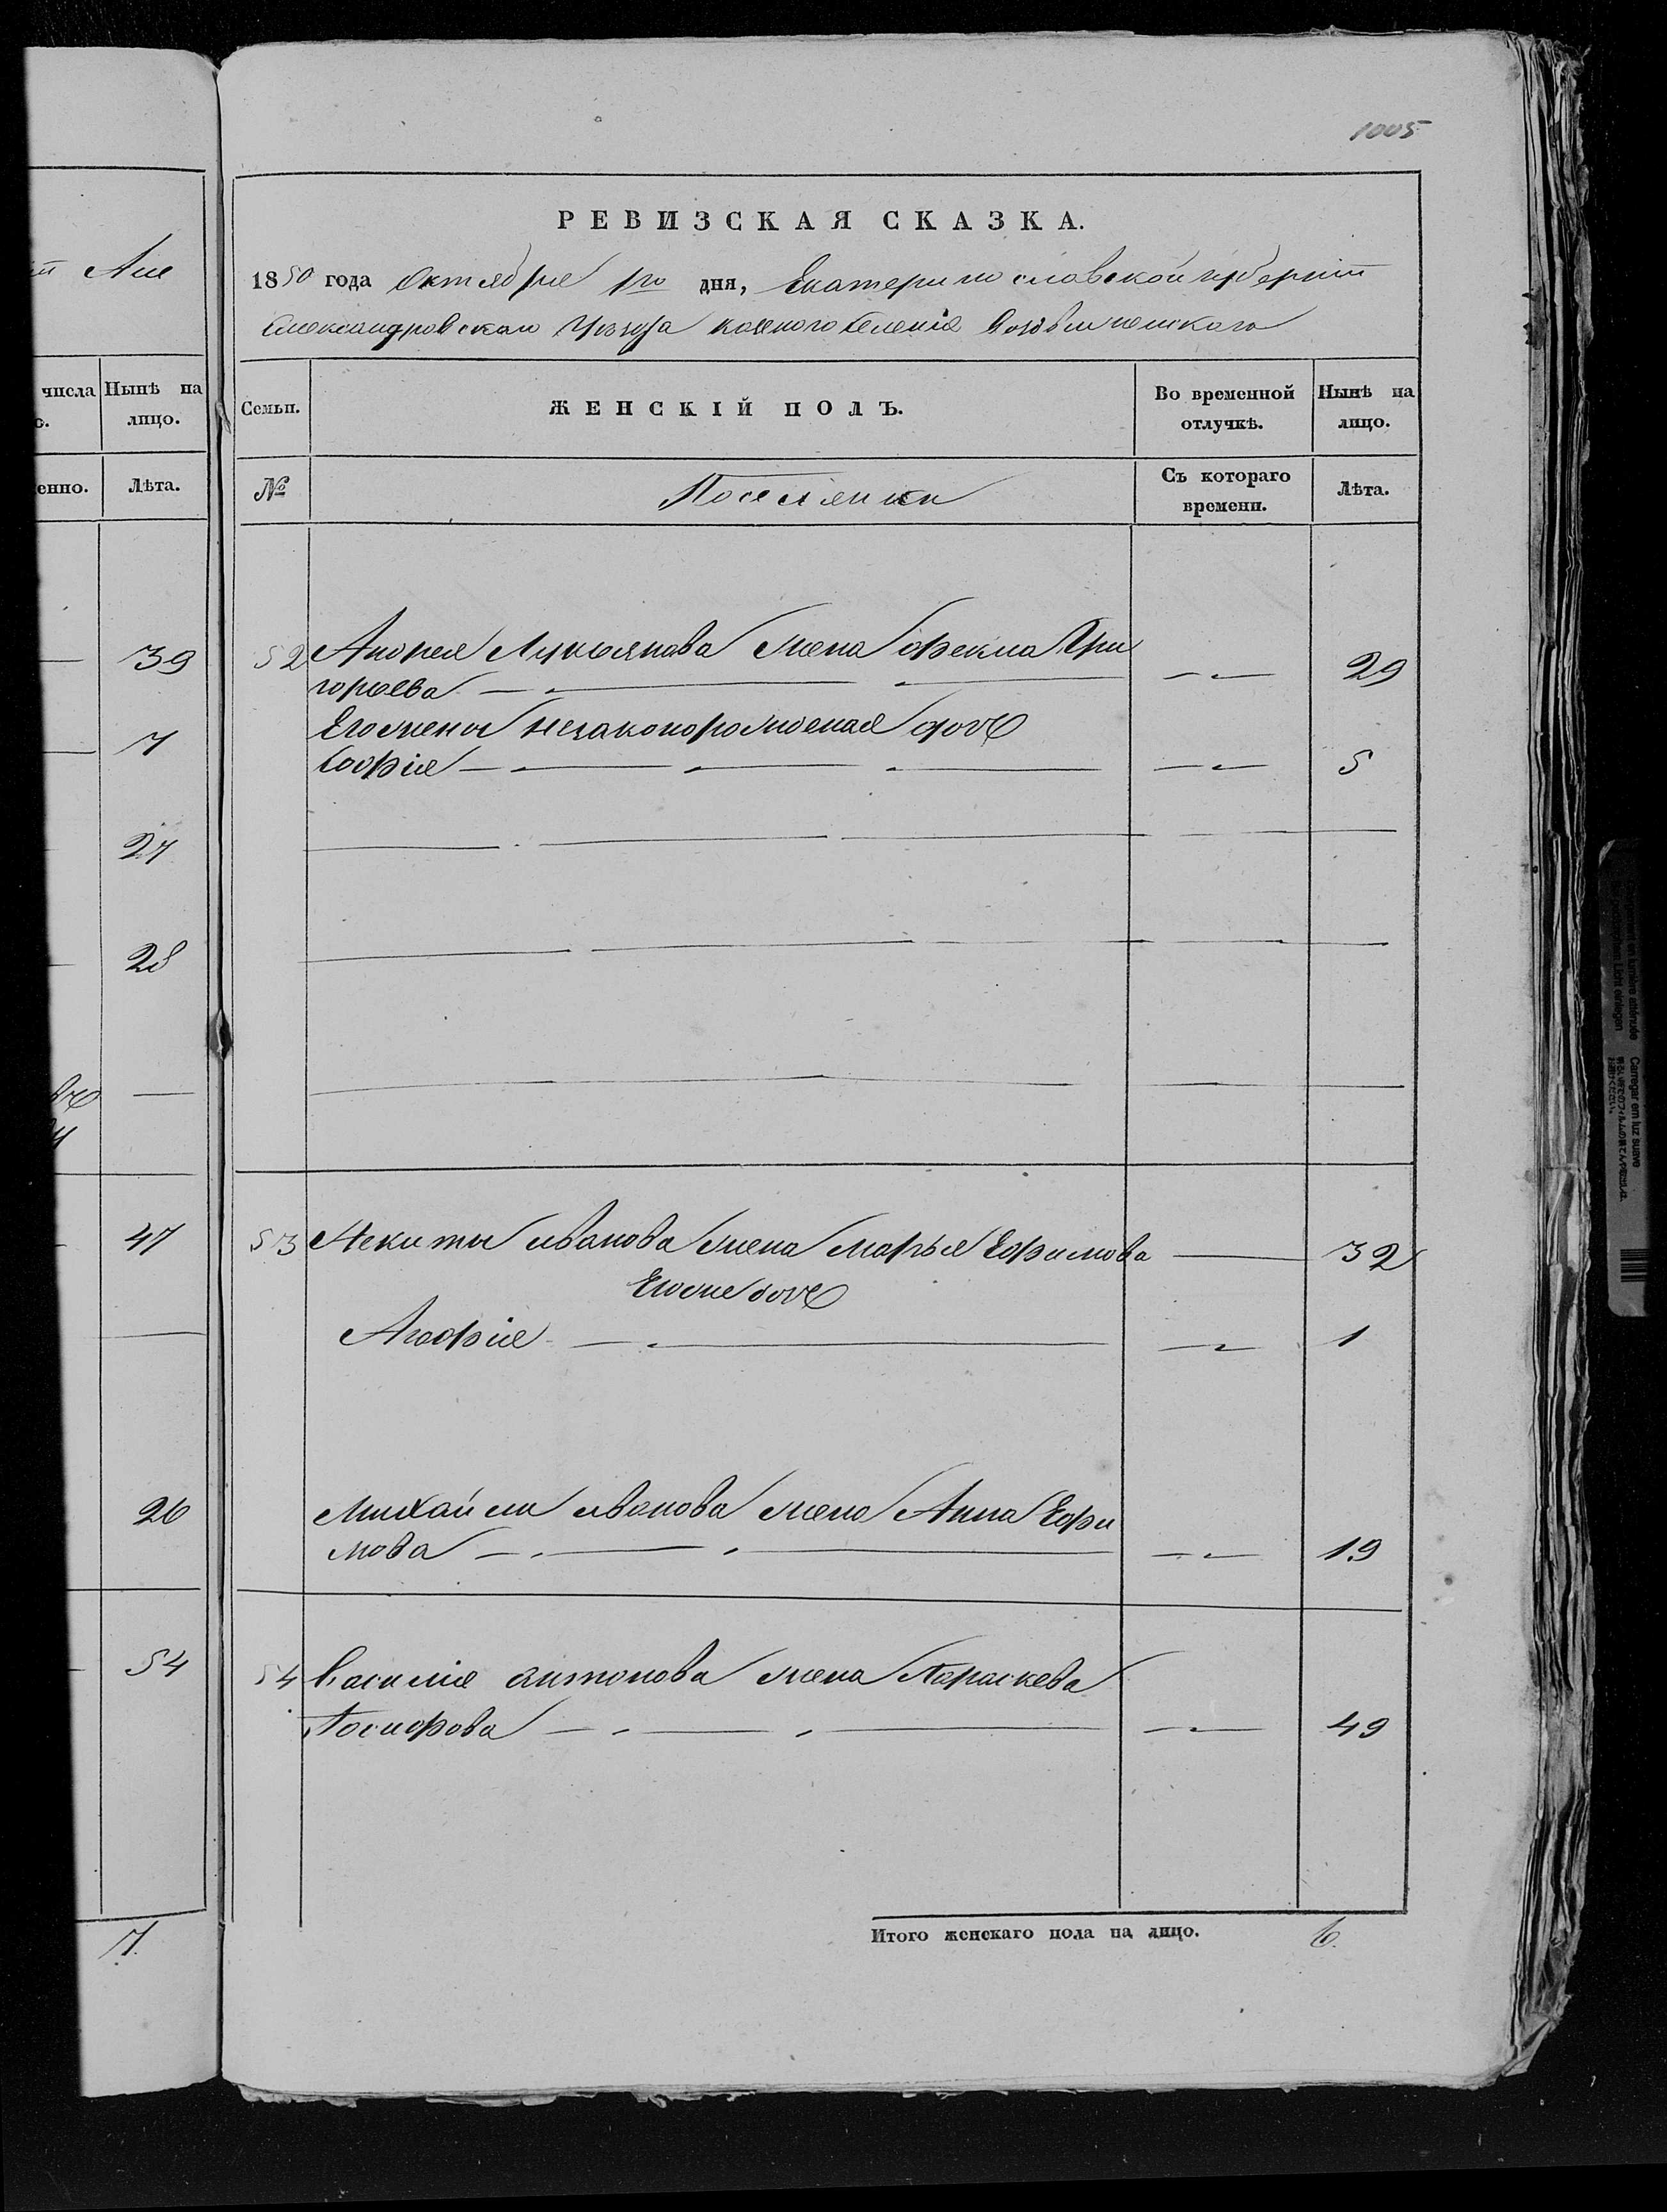 1005
РЕВИЗСКАЯ СКАЗКА.
1850 года Октября 1го дня, Екатеринославской губернии
Александровскаго Уезда казеного Селенія Воздвиженского
Семьи.
ЖЕНСКІЙ ПОЛЪ.
Во временной отлучкѣ.
Нынѣ на лицо.
№
Поселянки
Съ котораго времени.
Лѣта.
52 Андрея Лукьянова жена Фекла Гри
горьева 29
Его жены незаконорожденая дочь
Софія 5
53 Некиты иванова жена марья Ефимова 32
Его же дочь
Агафія 1
Михайлы иванова жена Анна Ефи
мова 19
54 Василія антонова жена Параскева
Иосифова 49
Итого женскаго пола на лицо. 6.
числа
Нынѣ на лицо.
енно.
Лѣта.
39
7
27
28
47
26
54
7.